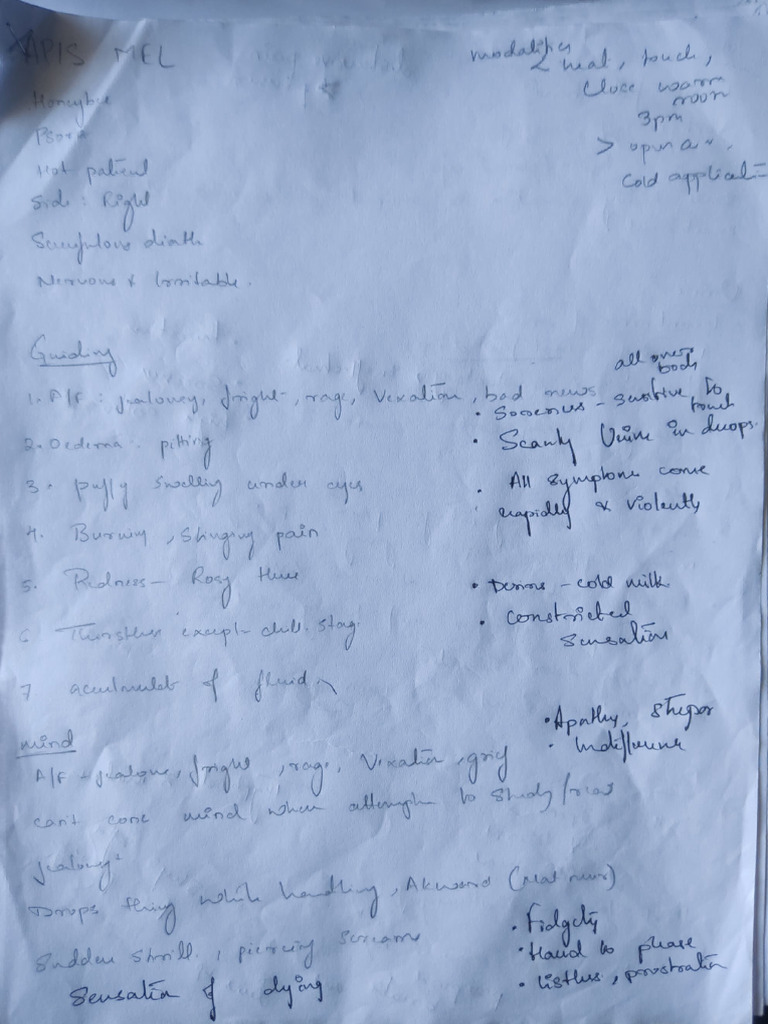 APIS MEL
modalities
< heat, touch,
close warm
room
3pm
> open air.
cold applicati
Honeybee
Psora
Hot patient
Side: Right
Scrufulous diath
Nervous & Irritable.
Guiding
1. A/F: jealousy, fright, rage, vexation, bad news
2. Oedema: pitting
3. puffy swelling under eyes
4. Burning, stinging pain
5. Redness - Rosy Hue
6 Thirstless except chill. stag
7 of fluid
all over
body
• Soreness - sensitive to
touch
• Scanty Urine in drops.
• All symptoms come
rapidly & violently
• Desires - cold milk
• Constricted
sensation
mind
• Apathy, Stupor
• Indifference
A/F - jealous, fright, rage, vexation, grief
can't conc mind, when attempts to study/read
jealousy²
Drops thing while handling, Akward
Sudden shrill, piercing scream
Sensation of dying
• Fidgety
• Hard to please
• listless, prostration